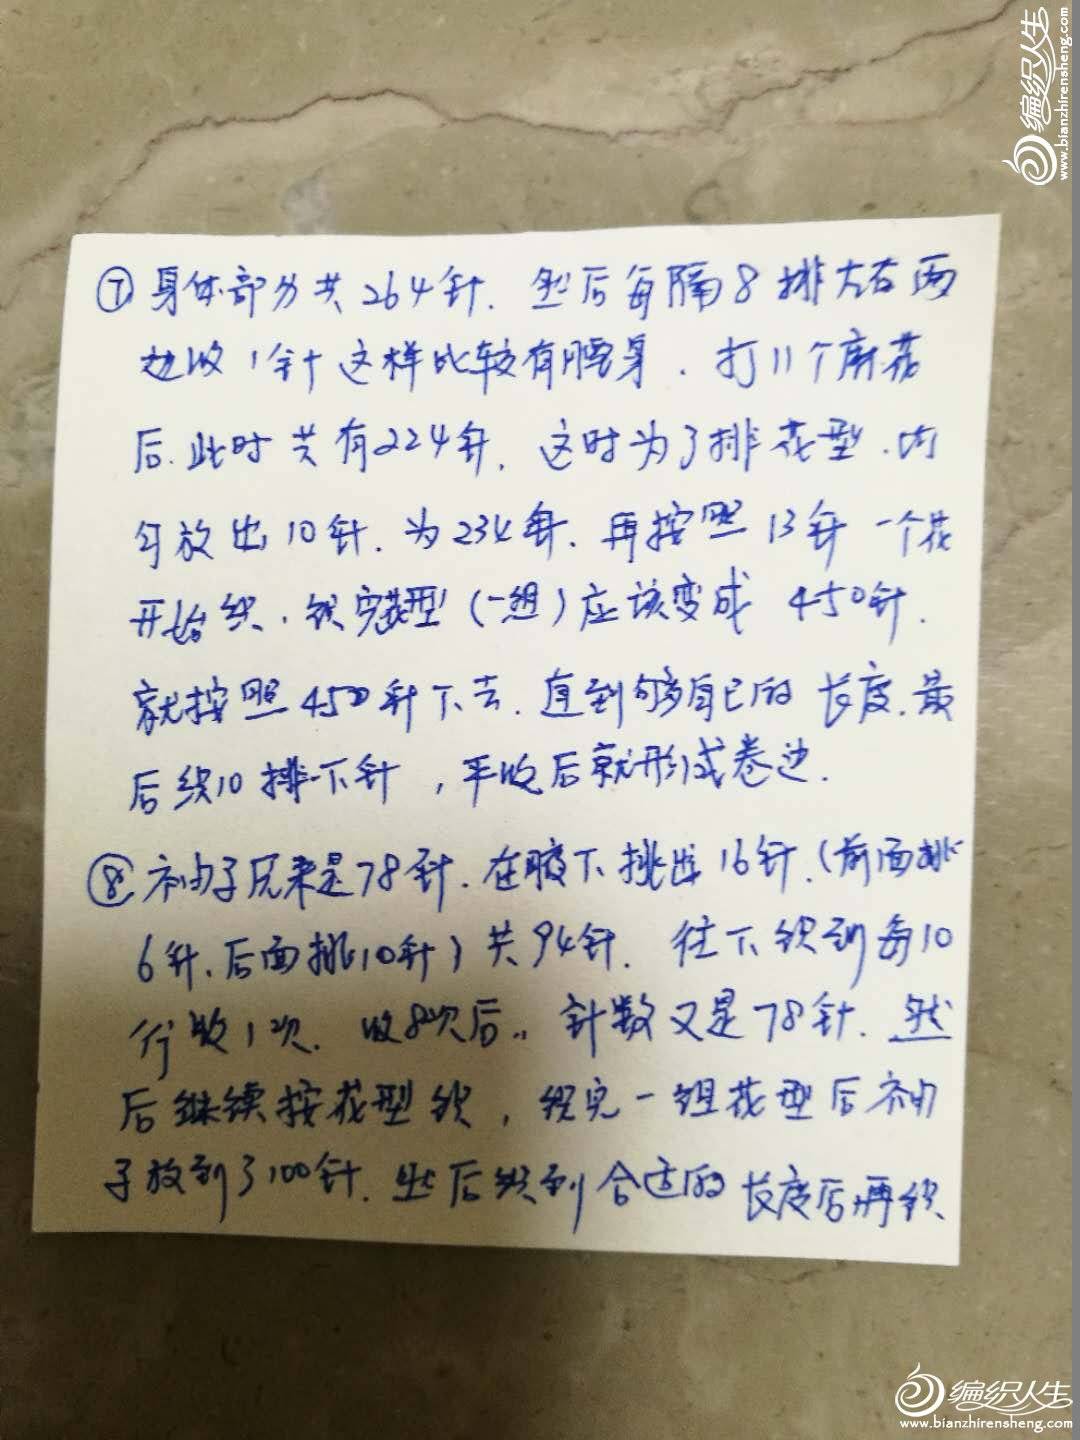 编织人生
www.bianzhirensheng.com
⑦身体部分共264针.然后每隔8排左右两
边收1针这样比较有腰身.打11个麻花
后.此时共有224针.这时为了排花型.均
匀放出10针.为234针.再按照13针一个花
开始织.织完花型(一组)应该变成450针.
就按照450针下去.直到够自己的长度.最
后织10排下针,平收后就形成卷边.
⑧袖子原来是78针.在腋下挑出16针.(前面挑
6针.后面挑10针)共94针.往下织到每10
行收1次.收8次后..针数又是78针.然
后继续按花型织,织完一组花型后袖
子放到了100针.然后织到合适的长度后再织
编织人生
www.bianzhirensheng.com